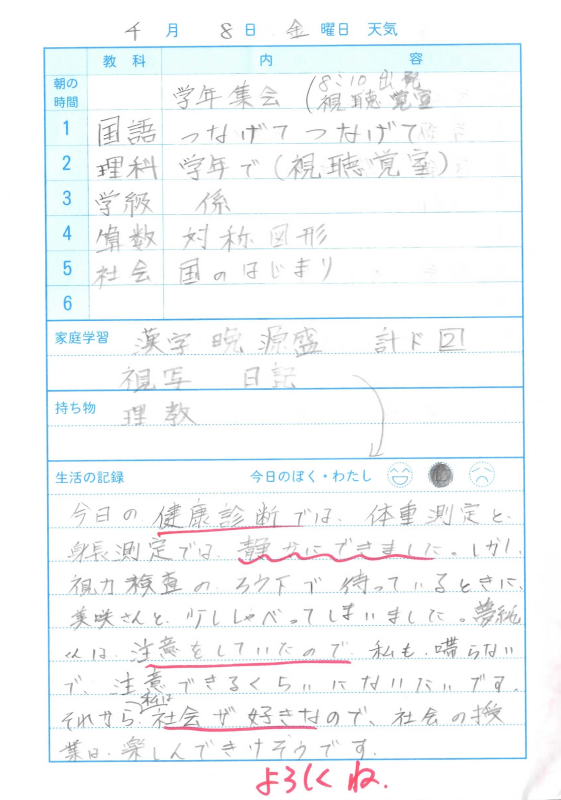 4月 8日 金曜日 天気
教科 内容
朝の時間 学年集会 (8:10出発 視聴覚室
1 国語 つなげてつなげて
2 理科 学年で(視聴覚室)
3 学級 係
4 算数 対称図形
5 社会 国のはじまり
6
家庭学習 漢字 晩 源 盛 計ド2
視写 日記
持ち物 理教
生活の記録 今日のぼく・わたし
今日の健康診断では、体重測定と、
身長測定では、静かにできました。しかし、
視力検査のろう下で待っているときに、
美咲さんと、少ししゃべってしまいました。夢統
くんは、注意をしていたので、私も、喋らない
で、注意できるくらいになりたいです。
それから、私は社会が好きなので、社会の授
業は、楽しんでできそうです。
よろしくね。